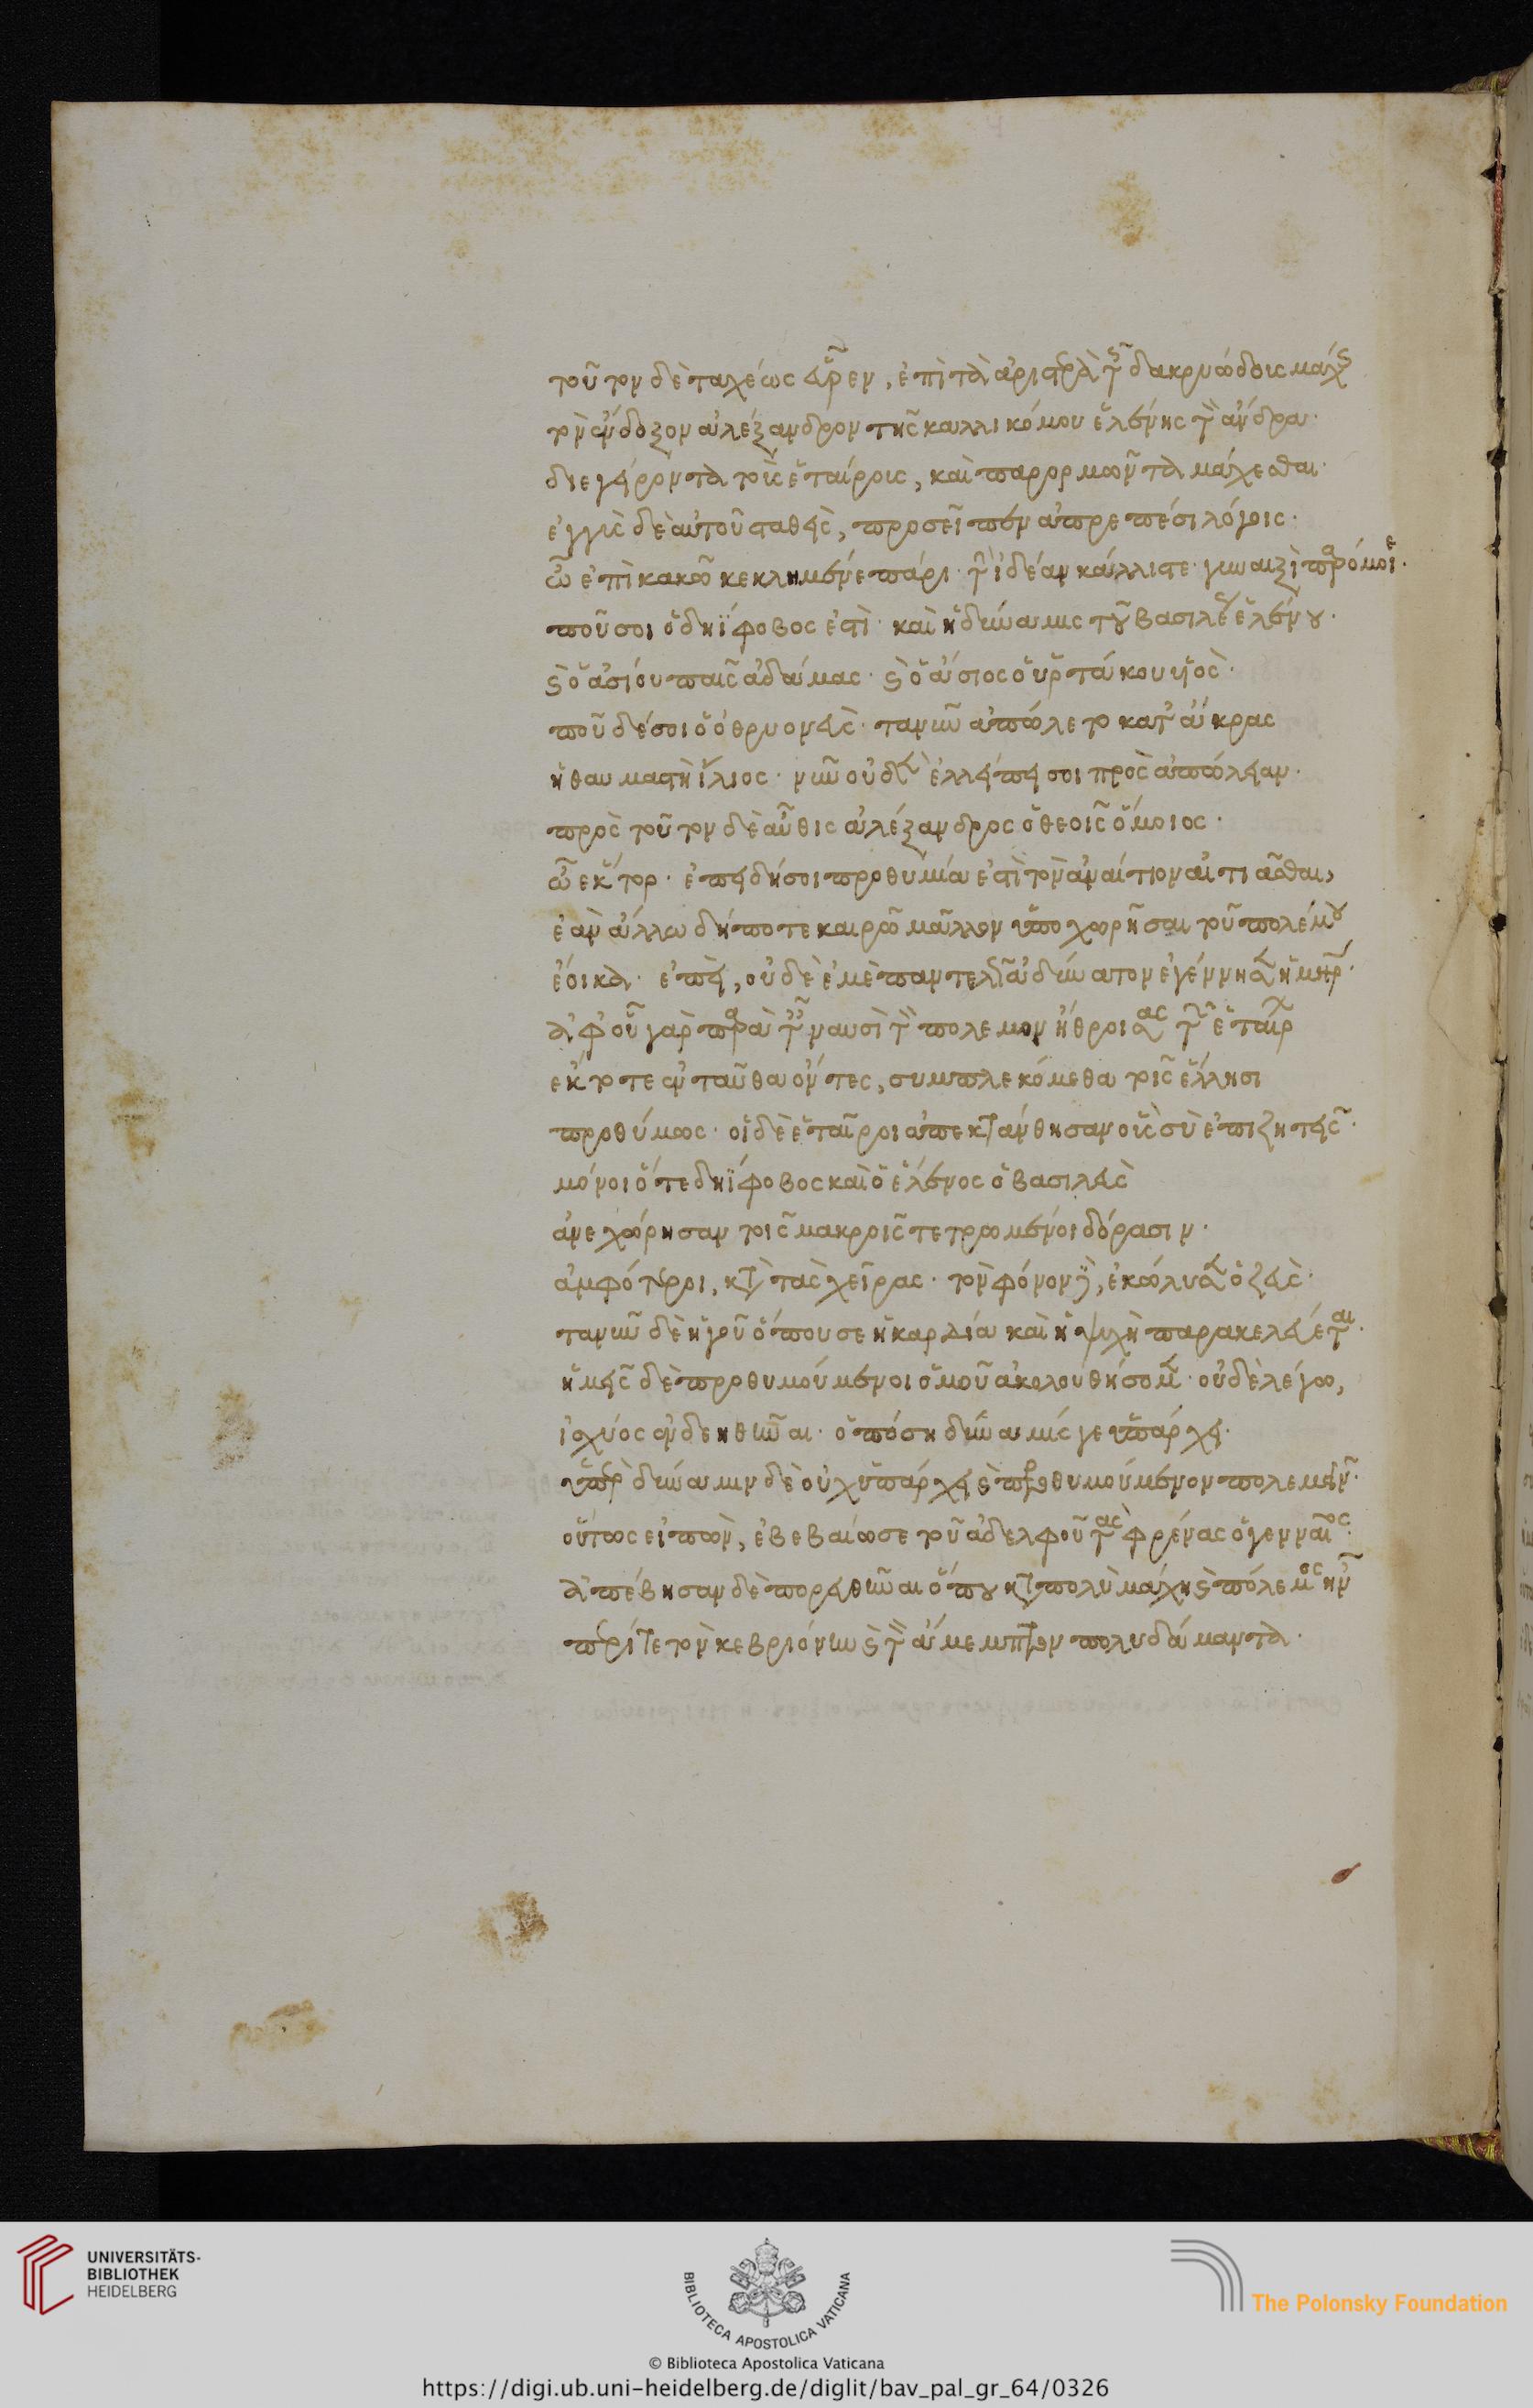 τοῦτον δὲ ταχέως εὗρεν, ἐπὶ τὰ ἀριστερὰ τῆς δακρυώδους μάχης
τὸν ἔνδοξον ἀλέξανδρον τῆς καλλικόμου ἑλένης τὸν ἄνδρα·
διεγείροντα τοὺς ἑταίρους, καὶ παρορμῶντα μάχεσθαι·
ἐγγὺς δὲ αὐτοῦ σταθεὶς, προσεῖπεν ἀπρεπέσι λόγοις·
ὦ ἐπὶ κακῶ κεκλημένε πάρι· τὴν ἰδέαν κάλλιστε· γυναιξὶ
ποῦ σοι ὁ δηΐφοβος ἐστὶ· καὶ ἡ δύναμις τοῦ βασιλέως ἑλένου·
καὶ ὁ ἀσίου παῖς ἀδάμας· καὶ ὁ ἄσιος ὁ ὑρτάκου υἱὸς·
ποῦ δέ σοι ὁ ὀθρυονεὺς· τανῦν ἀπώλετο κατ' ἄκρας
ἡ θαυμαστὴ ἴλιος· νῦν οὐδὲν ἐλλείπει σοι πρὸς ἀπώλειαν·
πρὸς τοῦτον δὲ αὖθις ἀλέξανδρος ὁ θεοῖς ὅμοιος·
ὦ ἕκτορ· ἐπειδή σοι προθυμία ἐστὶ τὸν ἀναίτιον αἰτιᾶσθαι,
ἐὰν ἄλλω δήποτε καιρῶ μᾶλλον ὑποχωρῆσαι τοῦ πολέμου
ἔοικα· ἐπεὶ, οὐδὲ ἐμὲ παντελῶς ἀδύνατον ἐγέννησεν ἡ μήτηρ·
ἀφ' οὗ γὰρ παρὰ ταῖς ναυσὶ τὸν πόλεμον ἤθροισας τῶν ἑταίρων
ἔκτοτε ἐνταῦθα ὄντες, συμπλεκόμεθα τοῖς ἕλλησι
προθύμως· οἱ δὲ ἑταῖροι ἀπεκτάνθησαν οὓς σὺ ἐπιζητεῖς·
μόνοι ὅ τε δηΐφοβος καὶ ὁ ἕλενος ὁ βασιλεὺς
ἀνεχώρησαν τοῖς μακροῖς τετρωμένοι δόρασιν·
ἀμφότεροι, κατὰ τὰς χεῖρας· τὸν φόνον δὲ, ἐκώλυσεν ὁ ζεὺς·
τανῦν δὲ ἡγοῦ ὅπου σε ἡ καρδία καὶ ἡ ψυχὴ παρακελεύεται·
ἡμεῖς δὲ προθυμούμενοι ὁμοῦ ἀκολουθήσομεν· οὐδὲ λέγω,
ἰσχύος ἐνδεηθῆναι· ὁπόση δύναμίς γε ὑπάρχει·
ὑπὲρ δύναμιν δὲ οὐχ ὑπάρχει καὶ προθυμούμενον πολεμεῖν·
οὕτως εἰπὼν, ἐβεβαίωσε τοῦ ἀδελφοῦ τὰς φρένας ὁ γενναῖος·
ἀπέβησαν δὲ πορευθῆναι ὅπου κατὰ πολὺ μάχη καὶ πόλεμος ἦν
περί τε τὸν κεβριόνην καὶ τὸν ἄμεμπτον πολυδάμαντα·
UNIVERSITÄTS-
BIBLIOTHEK
HEIDELBERG
BIBLIOTECA APOSTOLICA VATICANA
The Polonsky Foundation
© Biblioteca Apostolica Vaticana
https://digi.ub.uni-heidelberg.de/diglit/bav_pal_gr_64/0326